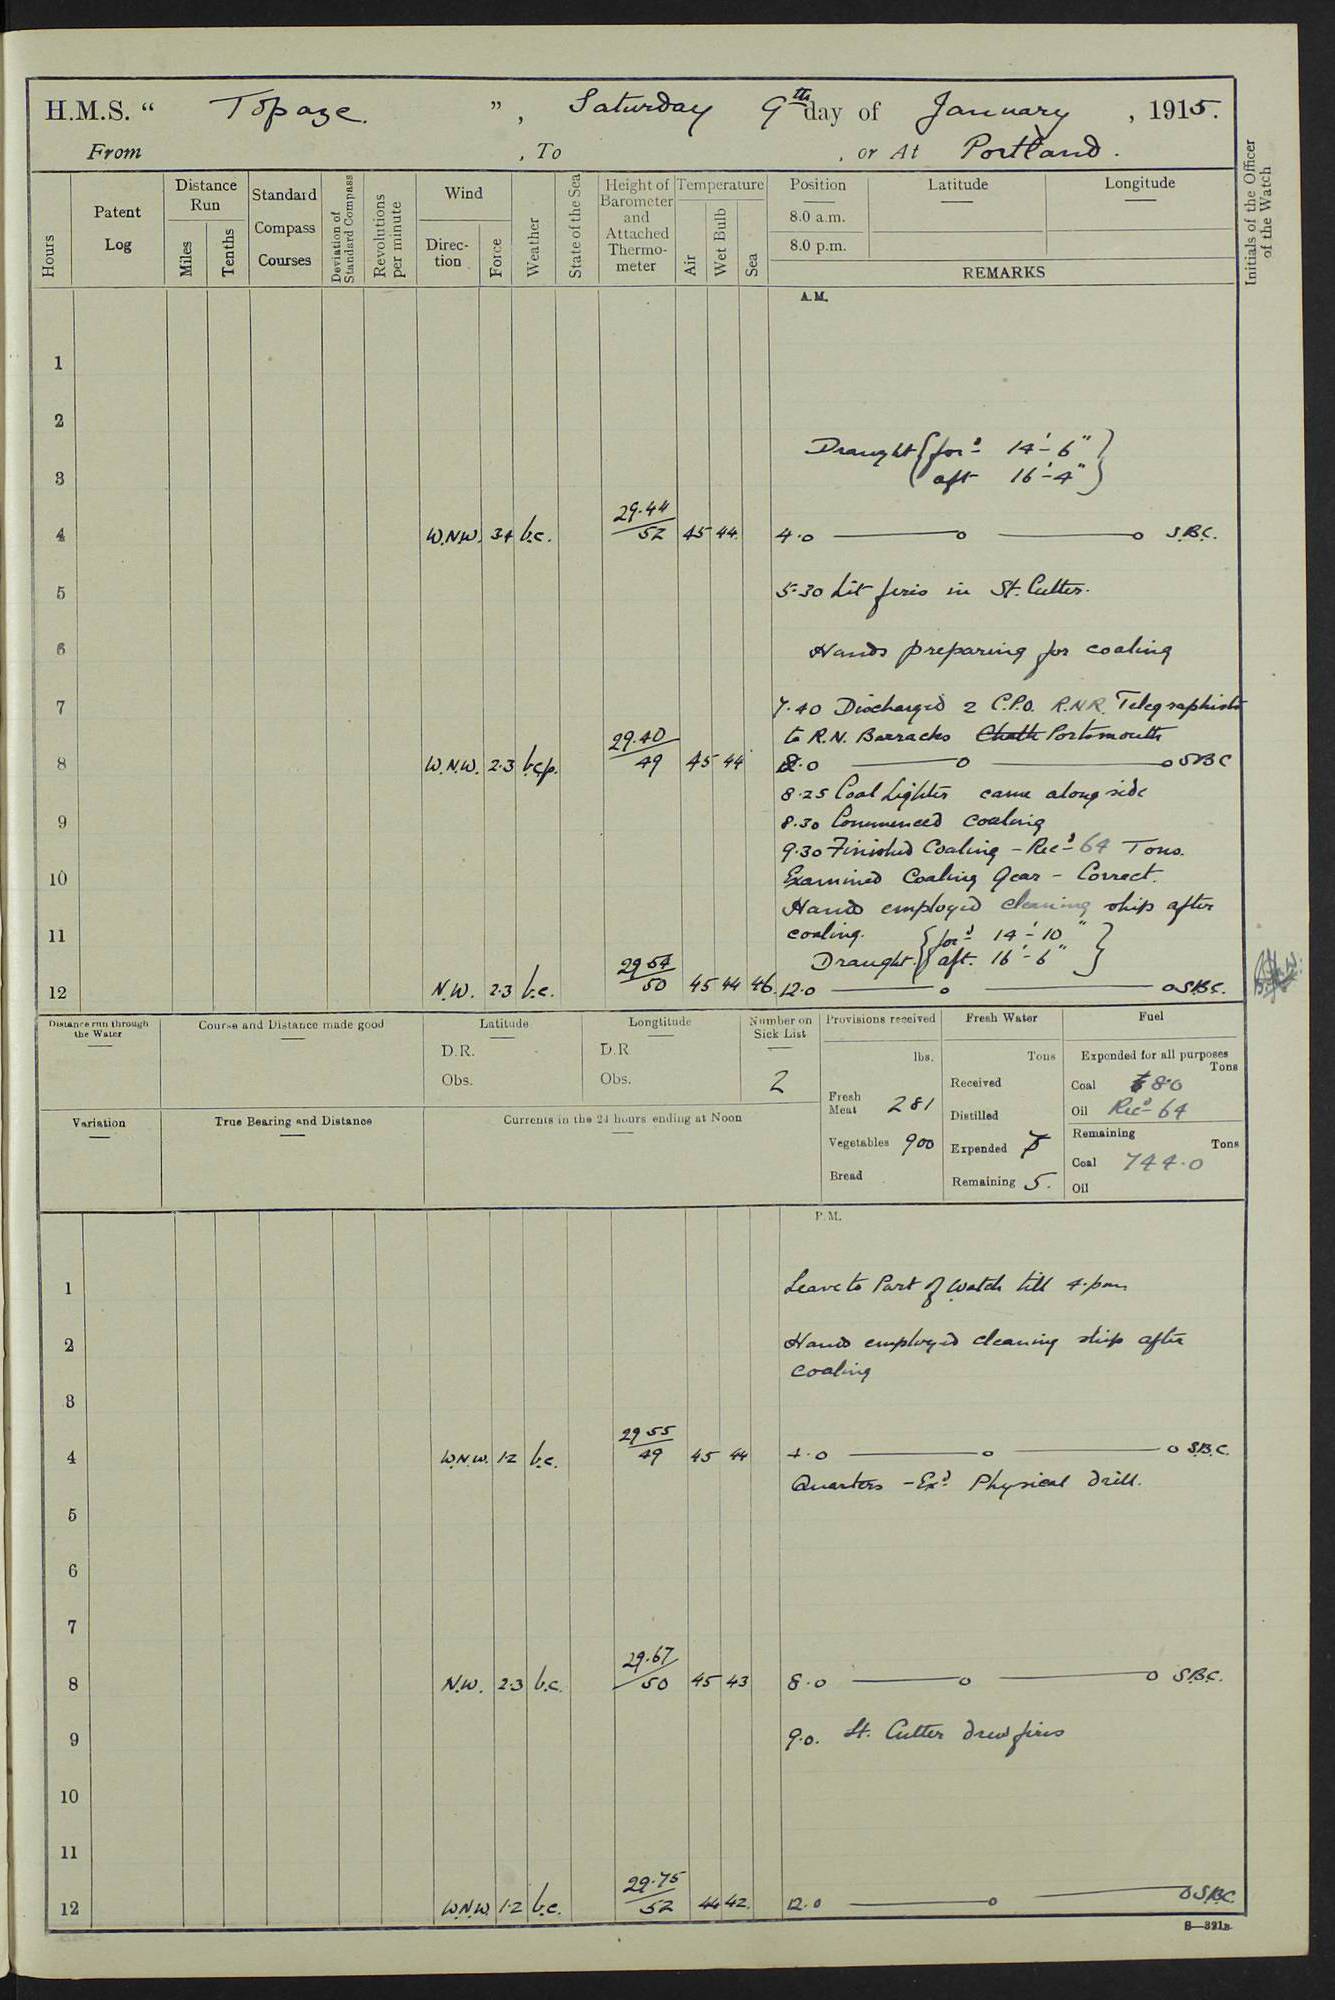 H.M.S. “ Topaze. ”, Saturday 9th day of January, 1915.
From , To , or At Portland.
Hours
Patent Log
Distance Run
Miles
Tenths
Standard Compass Courses
Deviation of Standard Compass
Revolutions per minute
Wind
Direc-tion
Force
Weather
State of the Sea
Height of Barometer and Attached Thermo-meter
Temperature
Air
Wet Bulb
Sea
Position
8.0 a.m.
8.0 p.m.
Latitude
Longitude
REMARKS
Initials of the Officer of the Watch
A.M.
1
2
Draught { for'd 14'-6" }
3
aft 16'-4"
29.44
4 W.N.W. 3.4 b.c. 52 45 44. 4.0 S.B.C.
5 5.30 Lit fires in St. Cutter.
6 Hands preparing for coaling
7 7.40 Discharged 2 C.P.O. R.N.R. Telegraphists
to R.N. Barracks Chath Portsmouth
29.40
8 W.N.W. 2.3 b.c.p. 49 45 44 8.0 SBC
8.25 Coal Lighter came alongside
9 8.30 Commenced coaling
9.30 Finished Coaling - Rec'd 64 Tons.
10 Examined Coaling Gear - Correct.
Hands employed cleaning ship after
11 coaling. { for'd 14'-10" }
Draught. aft. 16'-6"
29 54
12 N.W. 2.3 b.c. 50 45 44 46. 12.0 S.B.C.
Distance run through the Water
Course and Distance made good
Latitude
D.R.
Obs.
Longtitude
D.R
Obs.
Number on Sick List
2
Provisions received
lbs.
Fresh Meat 281
Vegetables 900
Bread
Fresh Water
Tons
Received
Distilled
Expended 5
Remaining 5.
Fuel
Expended for all purposes
Tons
Coal 80
Oil Rec'd 64
Remaining
Tons
Coal 744.0
Oil
Variation
True Bearing and Distance
Currents in the 24 hours ending at Noon
P.M.
1 Leave to Part of Watch till 4.pm
2 Hands employed cleaning ship after
coaling
3
29 55
4 W.N.W. 1.2 b.c. 49 45 44 4.0 S.B.C.
Quarters - Ex'd Physical drill.
5
6
7
29.67
8 N.W. 2.3 b.c. 50 45 43 8.0 S.B.C.
9 9.0. St. Cutter drew fires
10
11
29.75
12 W.N.W. 1.2 b.c. 52 44 42. 12.0 S.B.C.
S—321B.